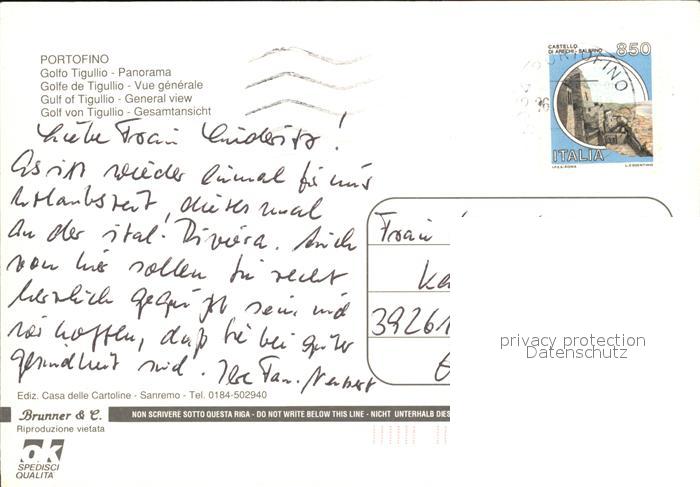 PORTOFINO
Golfo Tigullio - Panorama
Golfe de Tigullio - Vue générale
Gulf of Tigullio - General view
Golf von Tigullio - Gesamtansicht
CASTELLO
DI ARECHI - SALERNO
850
PORTOFINO
96
ITALIA
I.P.Z.S. ROMA
Liebe Frau Lüderitz!
Es ist wieder einmal für uns
Urlaubszeit, dieses mal
an der ital. Riviéra. Auch
von hier sollen Sie recht
herzlich gegrüßt sein und
wir hoffen, daß Sie bei guter
Gesundheit sind. Ihre Fam.
Frau
39261
privacy protection
Datenschutz
Ediz. Casa delle Cartoline - Sanremo - Tel. 0184-502940
Brunner & C.
NON SCRIVERE SOTTO QUESTA RIGA - DO NOT WRITE BELOW THIS LINE - NICHT UNTERHALB DIES
Riproduzione vietata
ok
SPEDISCI
QUALITA